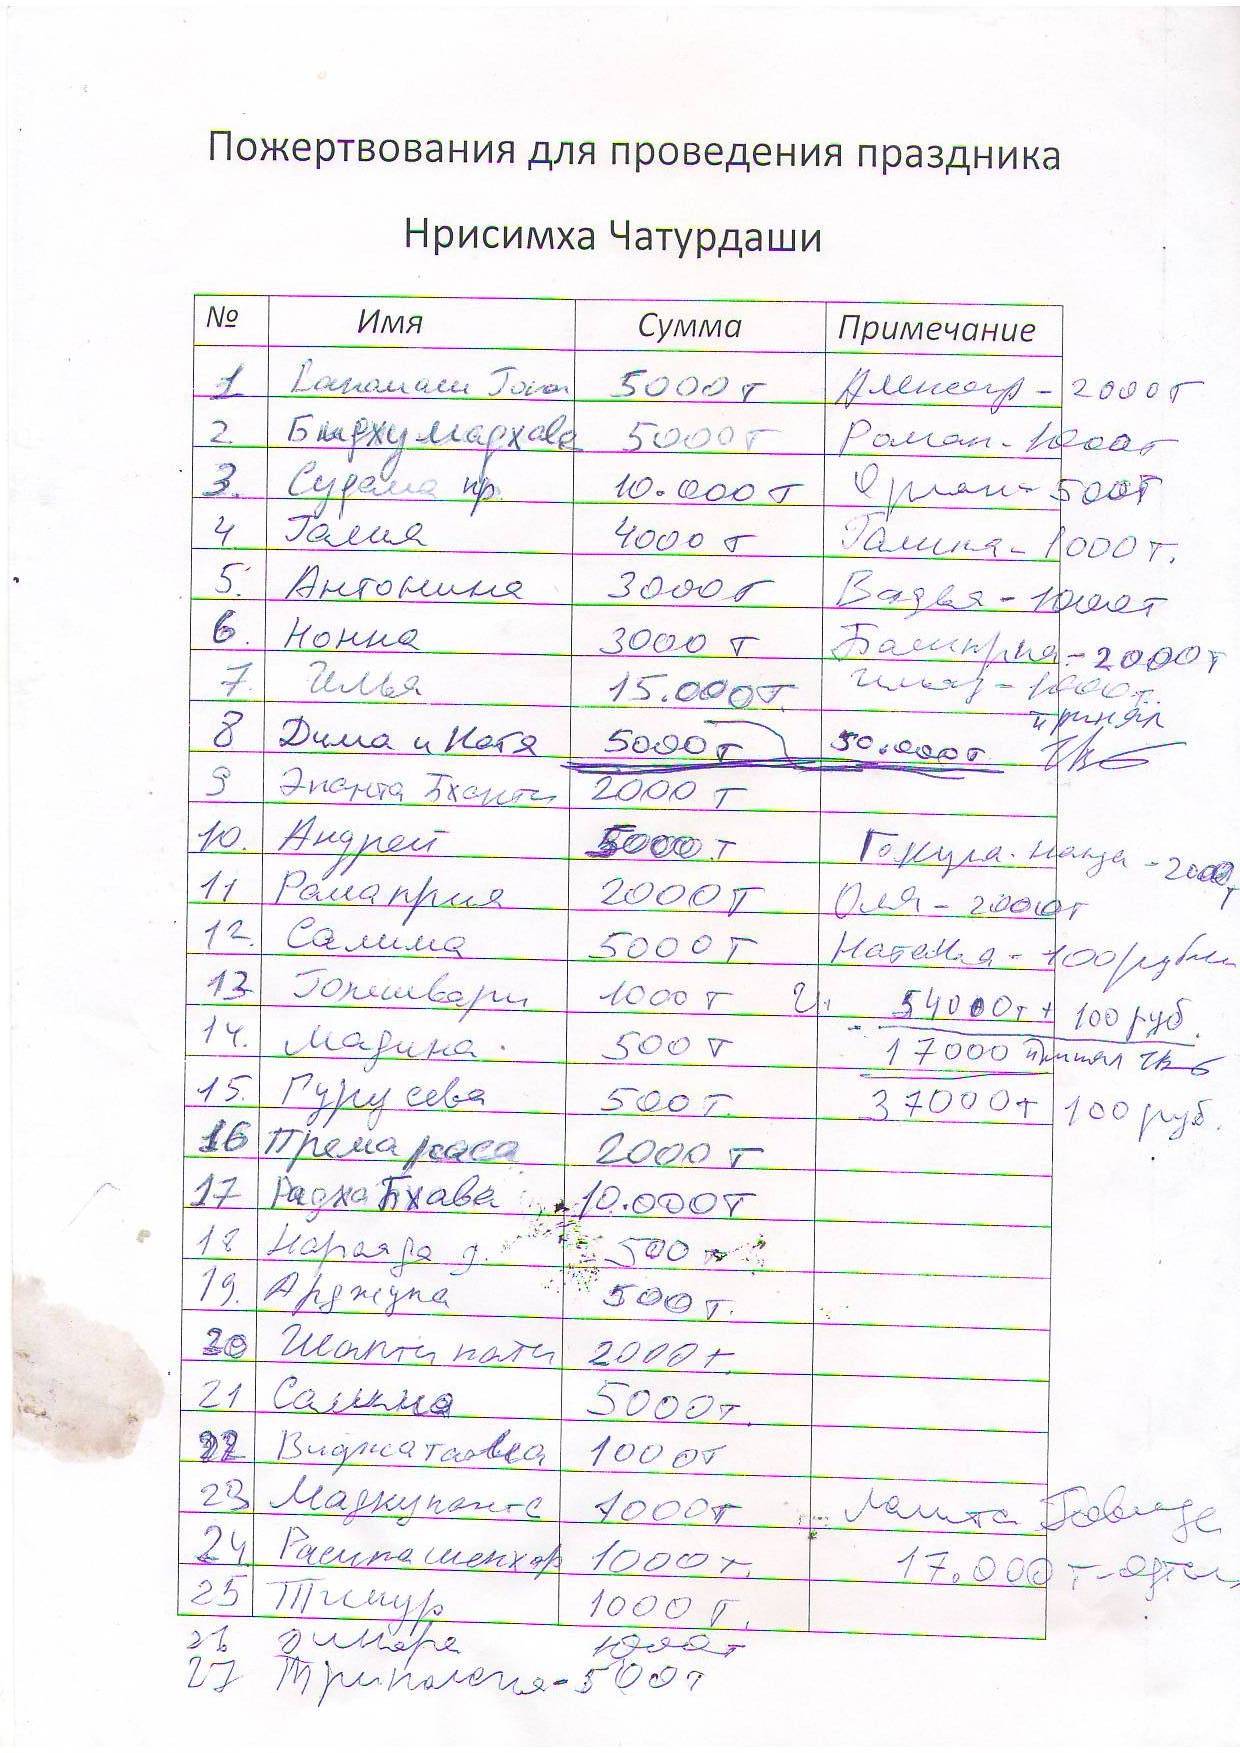 Пожертвования для проведения праздника
Нрисимха Чатурдаши
№ Имя Сумма Примечание
1 5000 т - 2000т
2. Бидху Мадхава 5000т Роман - 1000т
3. Судама пр. 10.000 т - 500т
4 Галия 4000 т Галина - 1000 т.
5. Антонина 3000т Вадья - 1000т
6. Нонна 3000 т - 2000т
7. Илья 15.000т. - 1000т.
принял
8 Дима и Катя 5000т 50.000т.
9 Эканта Бхакти 2000 т
10. Андрей 5000 т Гокула-нанда - 2000т
11 Рамаприя 2000т Оля - 2000т
12. Салима 5000т Наталия - 100 рублей
13 Гопешвари 1000 т 54000т + 100 руб.
14. Мадина. 500 т 17000 принял
15. Гурусева 500т. 37000т 100 руб.
16 Према раса 2000 т
17 Радха Бхава 10.000т
18 д. 500 т
19. Арджуна 500т.
20 Шакти пати 2000т.
21 5000т.
22 1000т
23 1000т Лалита Говинде
24 1000т. 17.000 т-
25 Тимур 1000 т.
26 Динара 1000т
27 - 500т